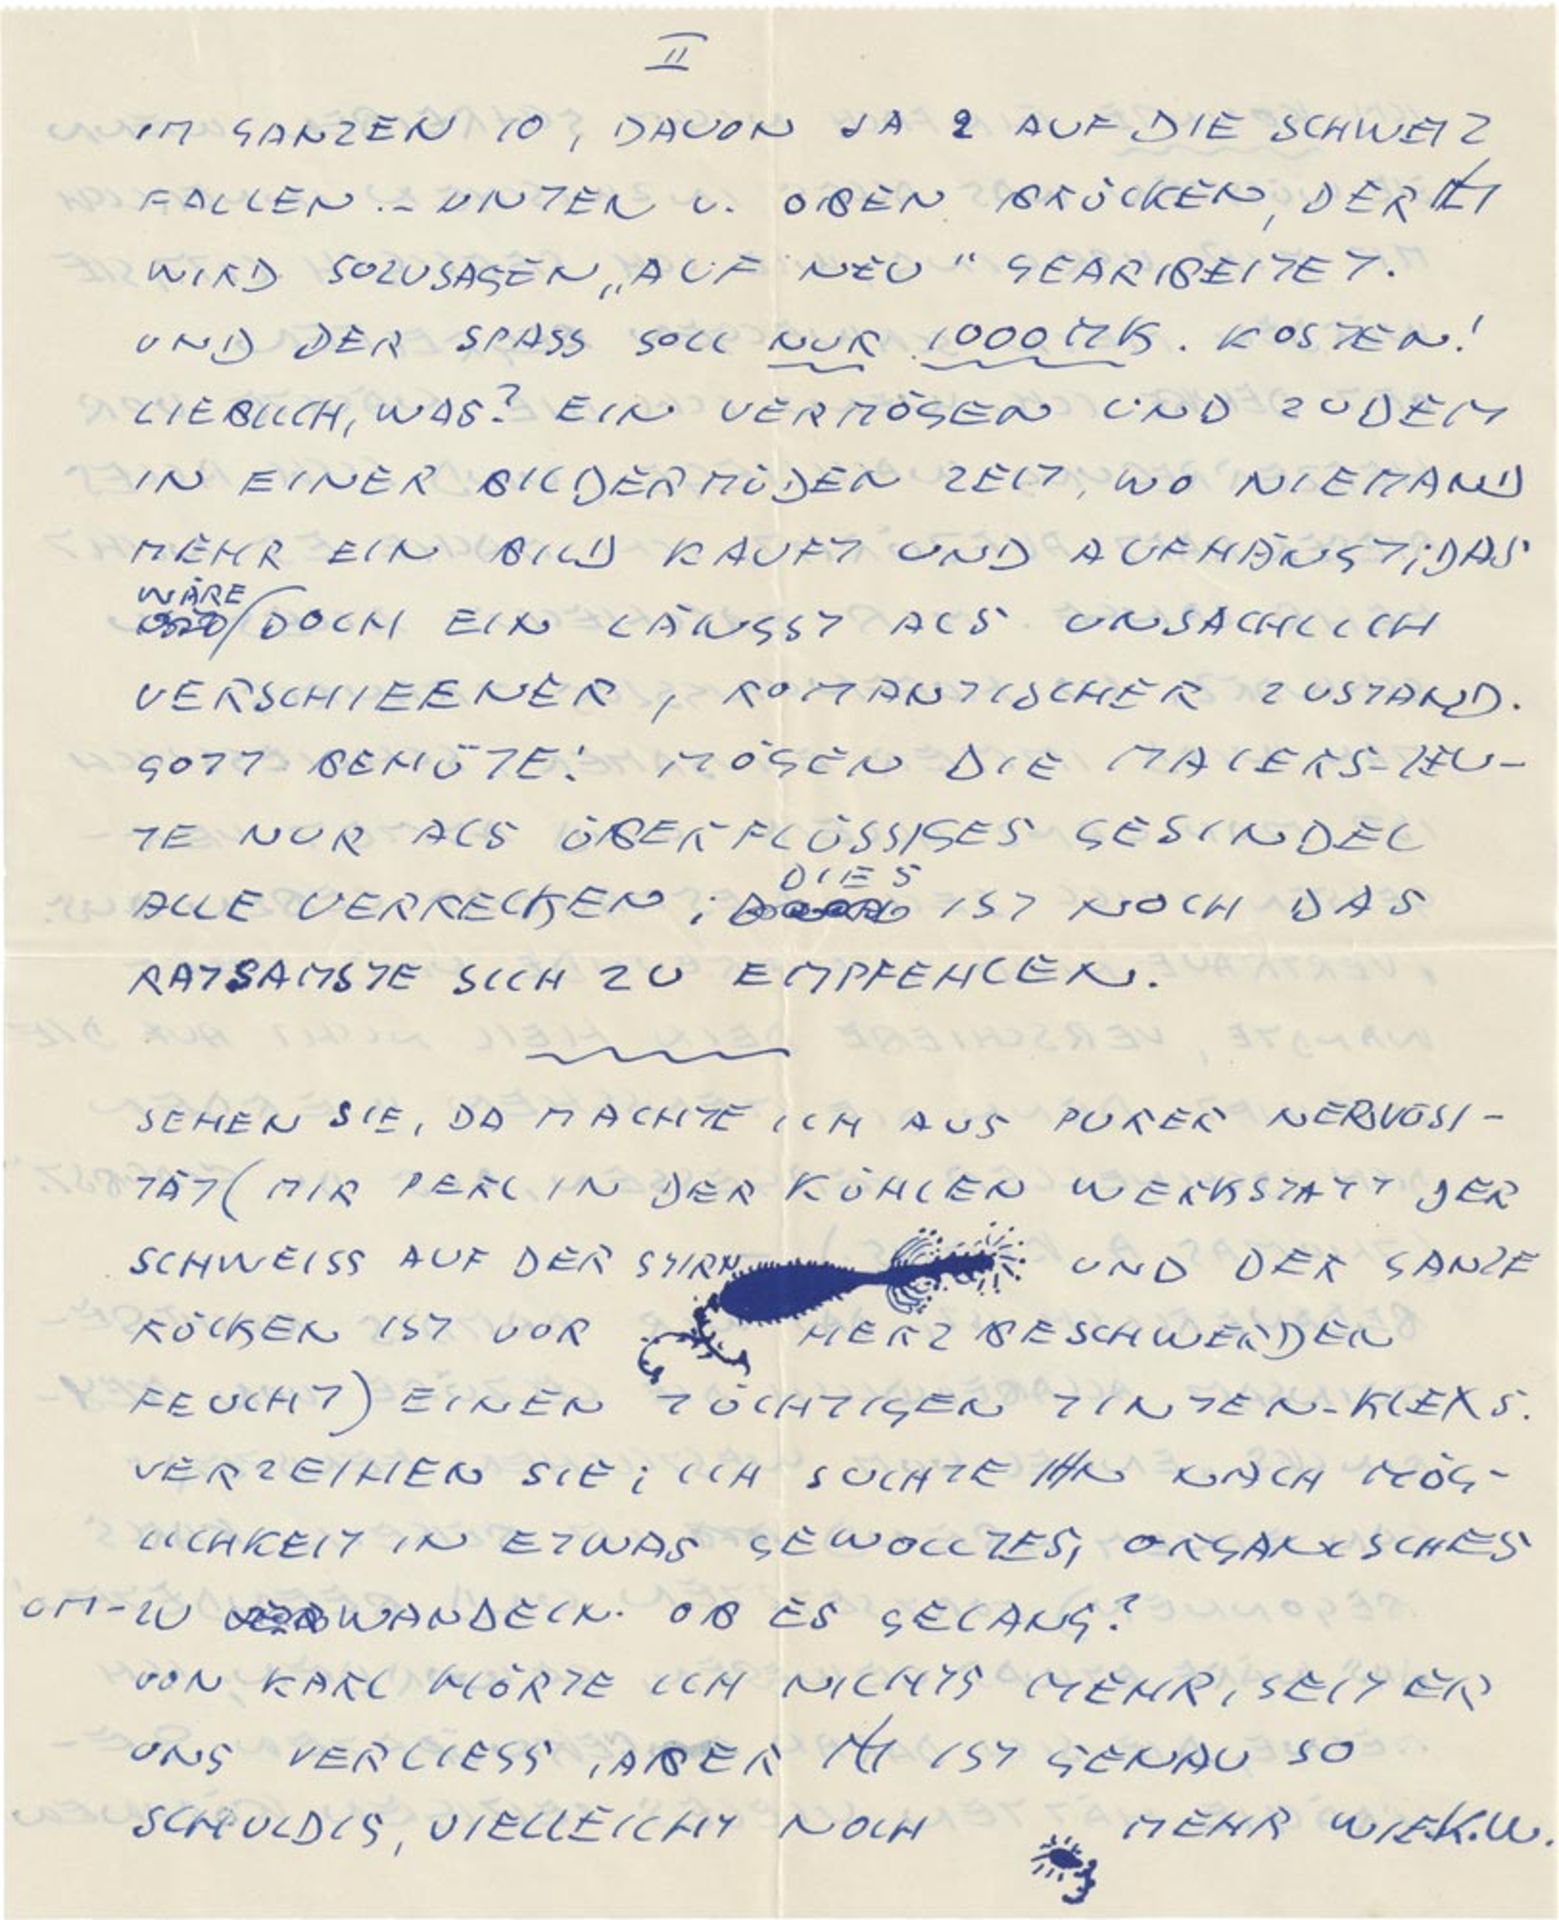 II
IM GANZEN 10, DAVON JA 2 AUF DIE SCHWEIZ
FALLEN.– UNTEN U. OBEN BRÜCKEN, DER
WIRD SOZUSAGEN „AUF NEU" GEARBEITET.
UND DER SPASS SOLL NUR 1000 MK. KOSTEN!
LIEBLICH, WAS? EIN VERMÖGEN UND ZUDEM
IN EINER BILDERMÜDEN ZEIT, WO NIEMAND
MEHR EIN BILD KAUFT UND AUFHÄNGT; DAS
WÄRE DOCH EIN LÄNGST ALS UNSACHLICH
VERSCHIEENER, ROMANTISCHER ZUSTAND.
GOTT BEHÜTE! MÖGEN DIE MALERS-LEU-
TE NUR ALS ÜBERFLÜSSIGES GESINDEL
ALLE VERRECKEN; DIES IST NOCH DAS
RATSAMSTE SICH ZU EMPFEHLEN.
SEHEN SIE, DA MACHTE ICH AUS PURER NERVOSI-
TÄT (MIR PERL IN DER KÜHLEN WERKSTATT DER
SCHWEISS AUF DER STIRN UND DER GANZE
RÜCKEN IST VOR HERZBESCHWERDEN
FEUCHT) EINEN TÜCHTIGEN TINTEN-KLEKS.
VERZEIHEN SIE; ICH SUCHTE IHN NACH MÖG-
LICHKEIT IN ETWAS GEWOLLTES, ORGANISCHES
UM-ZU WANDELN. OB ES GELANG?
VON KARL HÖRTE ICH NICHTS MEHR, SEIT ER
UNS VERLIESS, ABER IST GENAU SO
SCHULDIG, VIELLEICHT NOCH MEHR WIE K.W.